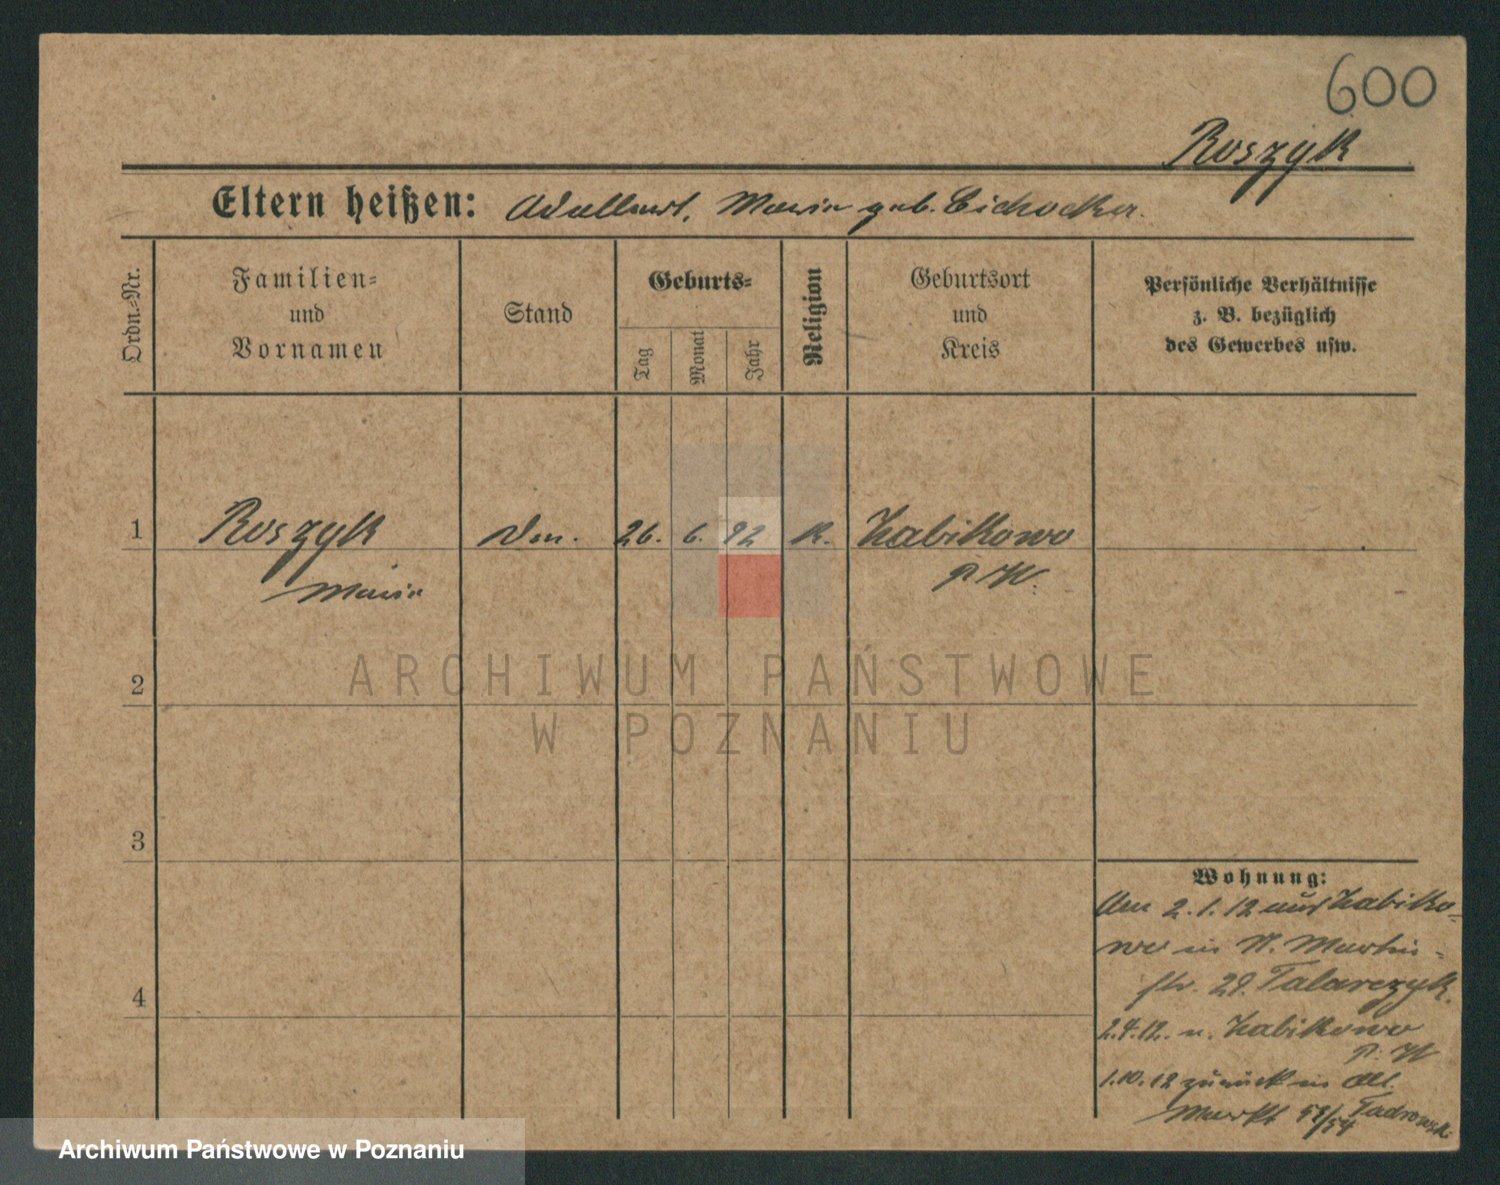 600
Roszyk
Eltern heißen: Adalbert, Maria geb. Cichocka.
Ordn.-Nr.
Familien-
und
Vornamen
Stand
Geburts-
Tag
Monat
Jahr
Religion
Geburtsort
und
Kreis
Persönliche Verhältnisse
z. B. bezüglich
des Gewerbes usw.
1
Roszyk
Maria
26. 6. 92
K.
Zabikowo
P. W.
2
3
4
Wohnung:
Am 2. 1. 12 aus Zabiko-
wo in St. Martin-
str. 28. Talarczyk.
2.4.12. n. Zabikowo
P. W
1.10.12 zurück in Alt.
Markt 53/54 Tadrowsk
ARCHIWUM PAŃSTWOWE
W POZNANIU
Archiwum Państwowe w Poznaniu